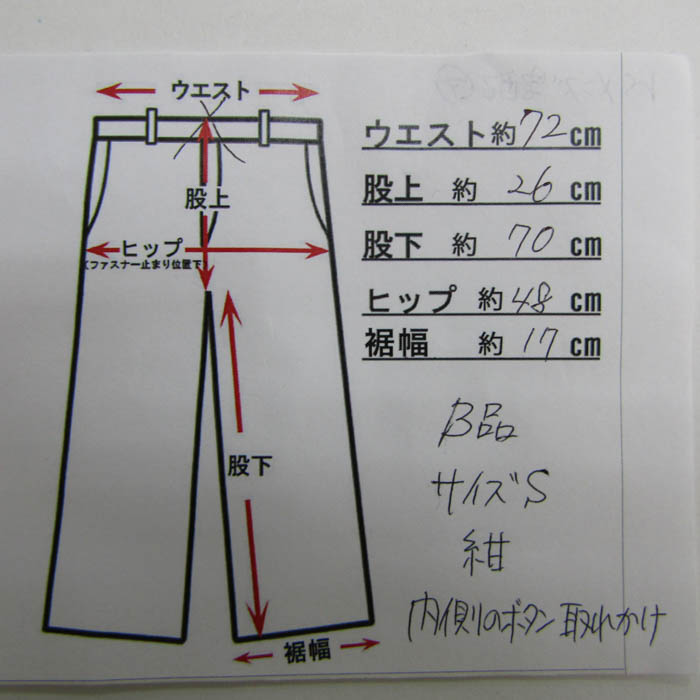 ウエスト
股上
ヒップ
(ファスナー止まり位置下)
股下
裾幅
ウエスト約72cm
股上 約 26 cm
股下 約 70 cm
ヒップ 約48cm
裾幅 約 17 cm
B品
サイズS
紺
内側のボタン取れかけ